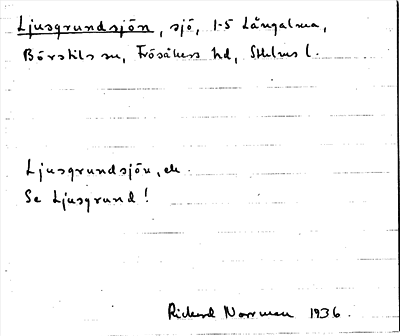 Ljusgrundsjön, sjö, 1-5 Långalma,
Börstils sn, Frösåkers hd, Sthlms l.
Ljusgrundsjön, ck
Se Ljusgrund!
Rickard Norrman 1936.